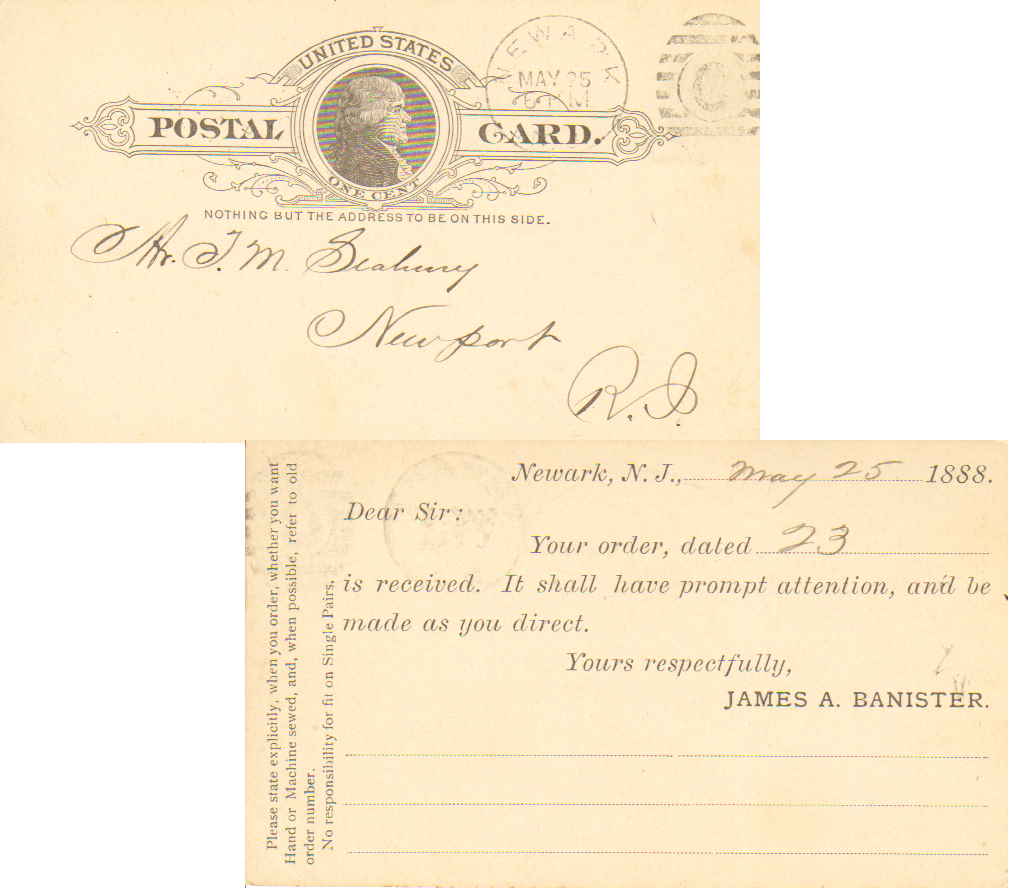 UNITED STATES
POSTAL CARD.
ONE CENT
NEWARK
MAY 25
NOTHING BUT THE ADDRESS TO BE ON THIS SIDE.
Mr. T. M. Seabury
Newport
R. I.
Newark, N. J., May 25 1888.
Dear Sir:
Your order, dated 23
is received. It shall have prompt attention, and be
made as you direct.
Yours respectfully,
JAMES A. BANISTER.
Please state explicitly, when you order, whether you want
Hand or Machine sewed, and, when possible, refer to old
order number.
No responsibility for fit on Single Pairs.